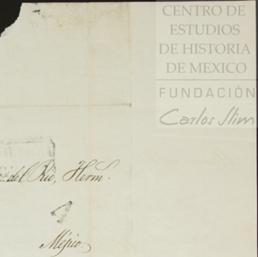 CENTRO DE
ESTUDIOS
DE HISTORIA
DE MEXICO
FUNDACIÓN
Carlos Slim
del Rio, Herm.
Mejico